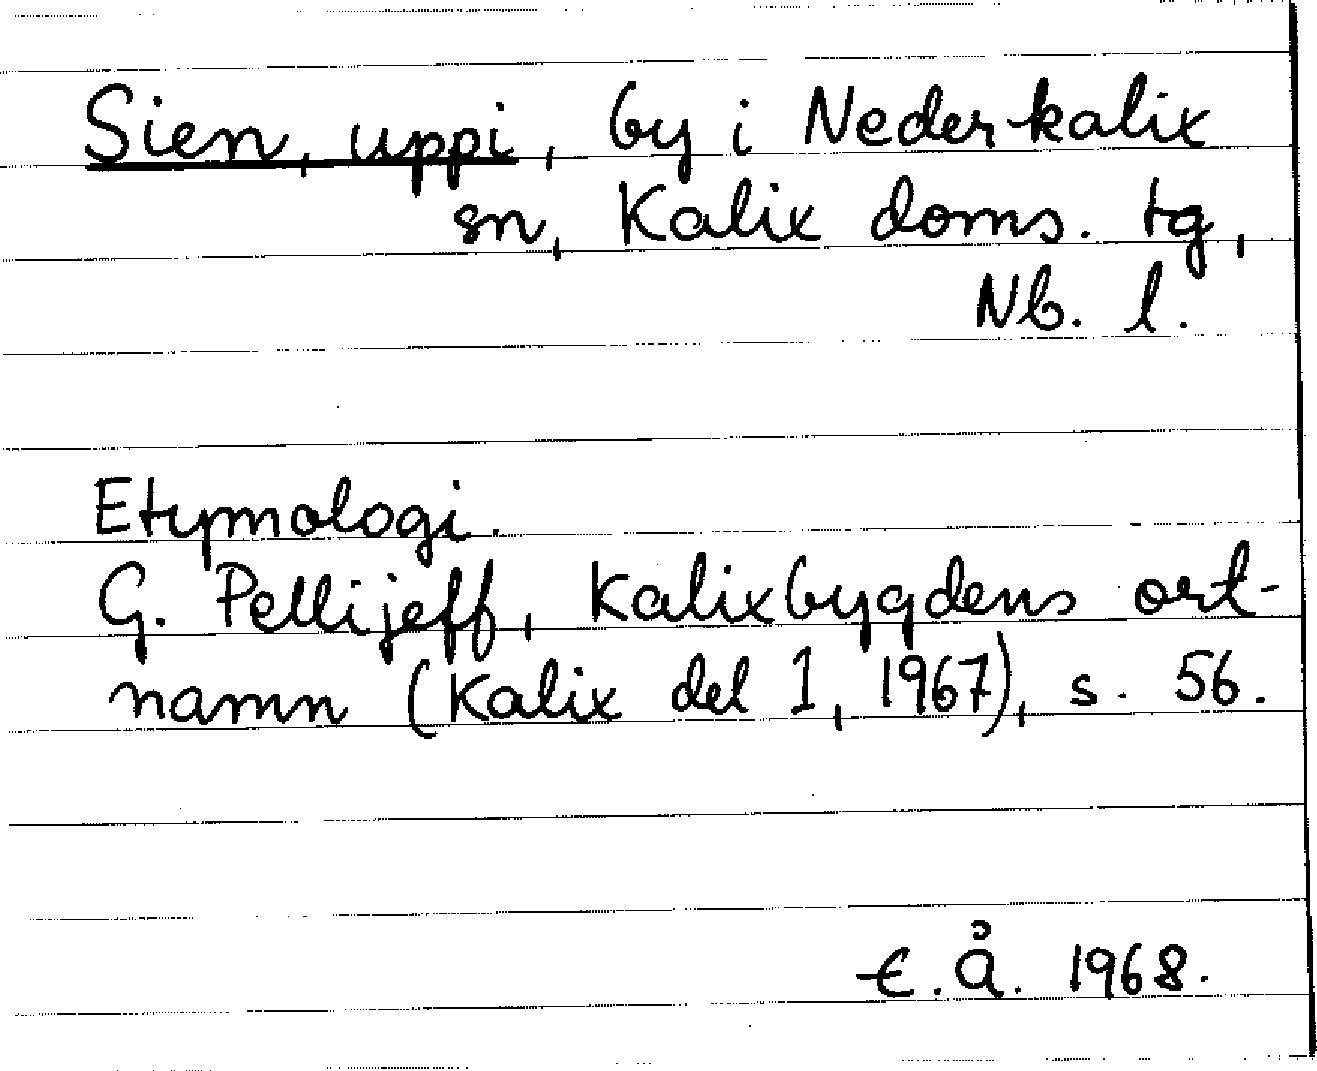 Sien, uppi, by i Nederkalix
sn, Kalix doms. tg,
Nb. l.
Etymologi.
G. Pellijeff, Kalixbygdens ort-
namn (Kalix del I, 1967), s. 56.
E.Å. 1968.